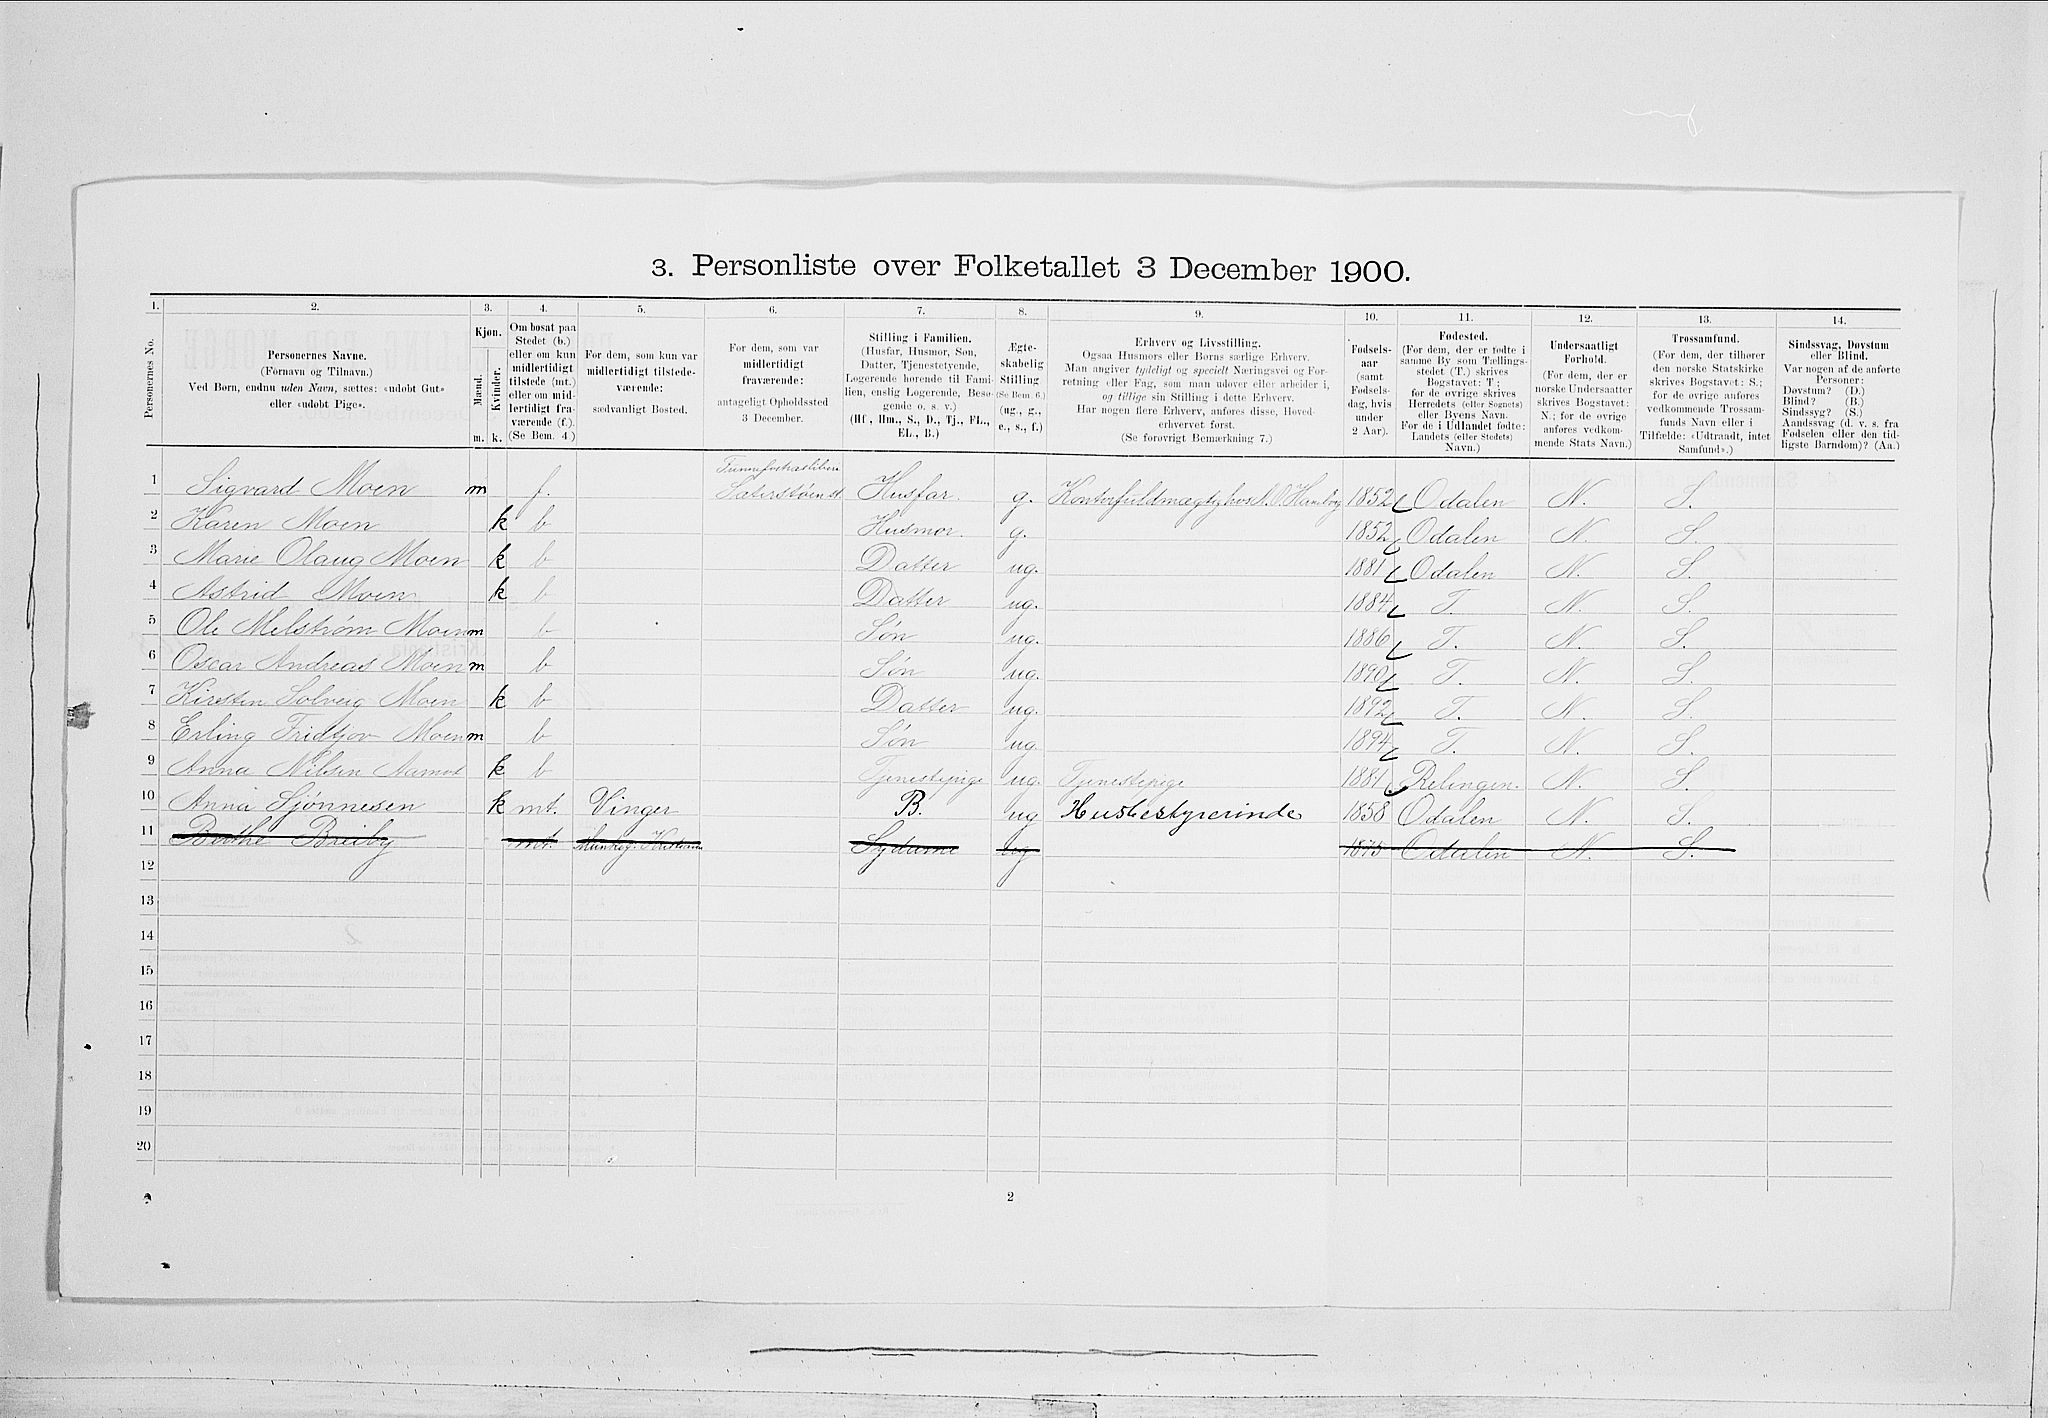 3. Personliste over Folketallet 3 December 1900.
1. 2. 3. 4. 5. 6. 7. 8. 9. 10. 11. 12. 13. 14.
Personernes No.
Personernes Navne.
(Fornavn og Tilnavn.)
Ved Børn, endnu uden Navn, sættes: «udøbt Gut»
eller «udøbt Pige».
Kjøn.
Mænd.
Kvinder.
m. k.
Om bosat paa
Stedet (b.)
eller om kun
midlertidigt
tilstede (mt.)
eller om mid-
lertidigt fra-
værende (f.).
(Se Bem. 4.)
For dem, som kun var
midlertidigt tilstede-
værende:
sædvanligt Bosted.
For dem, som var
midlertidigt
fraværende:
antageligt Opholdssted
3 December.
Stilling i Familien.
(Husfar, Husmor, Søn,
Datter, Tjenestetyende,
Logerende hørende til Fami-
lien, enslig Logerende, Besø-
gende o. s. v.)
(Hf., Hm., S., D., Tj., FL.,
EL., B.)
Ægte-
skabelig
Stilling
(Se Bem. 6.)
(ug., g.,
e., s., f.)
Erhverv og Livsstilling.
Ogsaa Husmors eller Børns særlige Erhverv.
Man angiver tydeligt og specielt Næringsvei og For-
retning eller Fag, som man udøver eller arbeider i,
og tillige sin Stilling i dette Erhverv.
Har nogen flere Erhverv, anføres disse, Hoved-
erhvervet først.
(Se forøvrigt Bemærkning 7.)
Fødsels-
aar
(samt
Fødsels-
dag, hvis
under
2 Aar).
Fødested.
(For dem, der er fødte i
samme By som Tællings-
stedet (T.) skrives
Bogstavet: T.;
for de øvrige skrives
Herredets (eller Sognets)
eller Byens Navn.
For de i Udlandet fødte:
Landets (eller Stedets)
Navn.)
Undersaatligt
Forhold.
(For dem, der er
norske Undersaatter
skrives Bogstavet:
N.; for de øvrige
anføres vedkom-
mende Stats Navn.)
Trossamfund.
(For dem, der tilhører
den norske Statskirke
skrives Bogstavet: S.;
for de øvrige anføres
vedkommende Trossam-
funds Navn eller i
Tilfælde: «Udtraadt, intet
Samfund».)
Sindssvag, Døvstum
eller Blind.
Var nogen af de anførte
Personer:
Døvstum? (D.)
Blind? (B.)
Sindssyg? (S.)
Aandssvag (d. v. s. fra
Fødselen eller den tid-
ligste Barndom)? (Aa.)
1 Sigvard Moen m f. Husfar. g. 1852 Odalen N. S.
2 Karen Moen k b Husmor. g. 1852 Odalen N. S.
3 Marie Olaug Moen k b Datter ug. 1881 Odalen N. S.
4 Astrid Moen k b Datter ug. 1884 T. N. S.
5 Ole Melstrøm Moen m b Søn ug. 1886 T. N. S.
6 Oscar Andreas Moen m b Søn ug. 1890 T. N. S.
7 Kirsten Solveig Moen k b Datter ug. 1892 T. N. S.
8 Erling Fridtjov Moen m b Søn ug. 1894 T. N. S.
9 Anna Nilsen Aamot k b Tjenestepige ug. Tjenestepige 1881 Relingen. N. S.
10 Anna Sjønnesen k mt. Vinger B. ug Husbestyrerinde 1858 Odalen N. S.
11 Berthe Breiby mt. ug Odalen N. S.
12
13
14
15
16
17
18
19
20
2